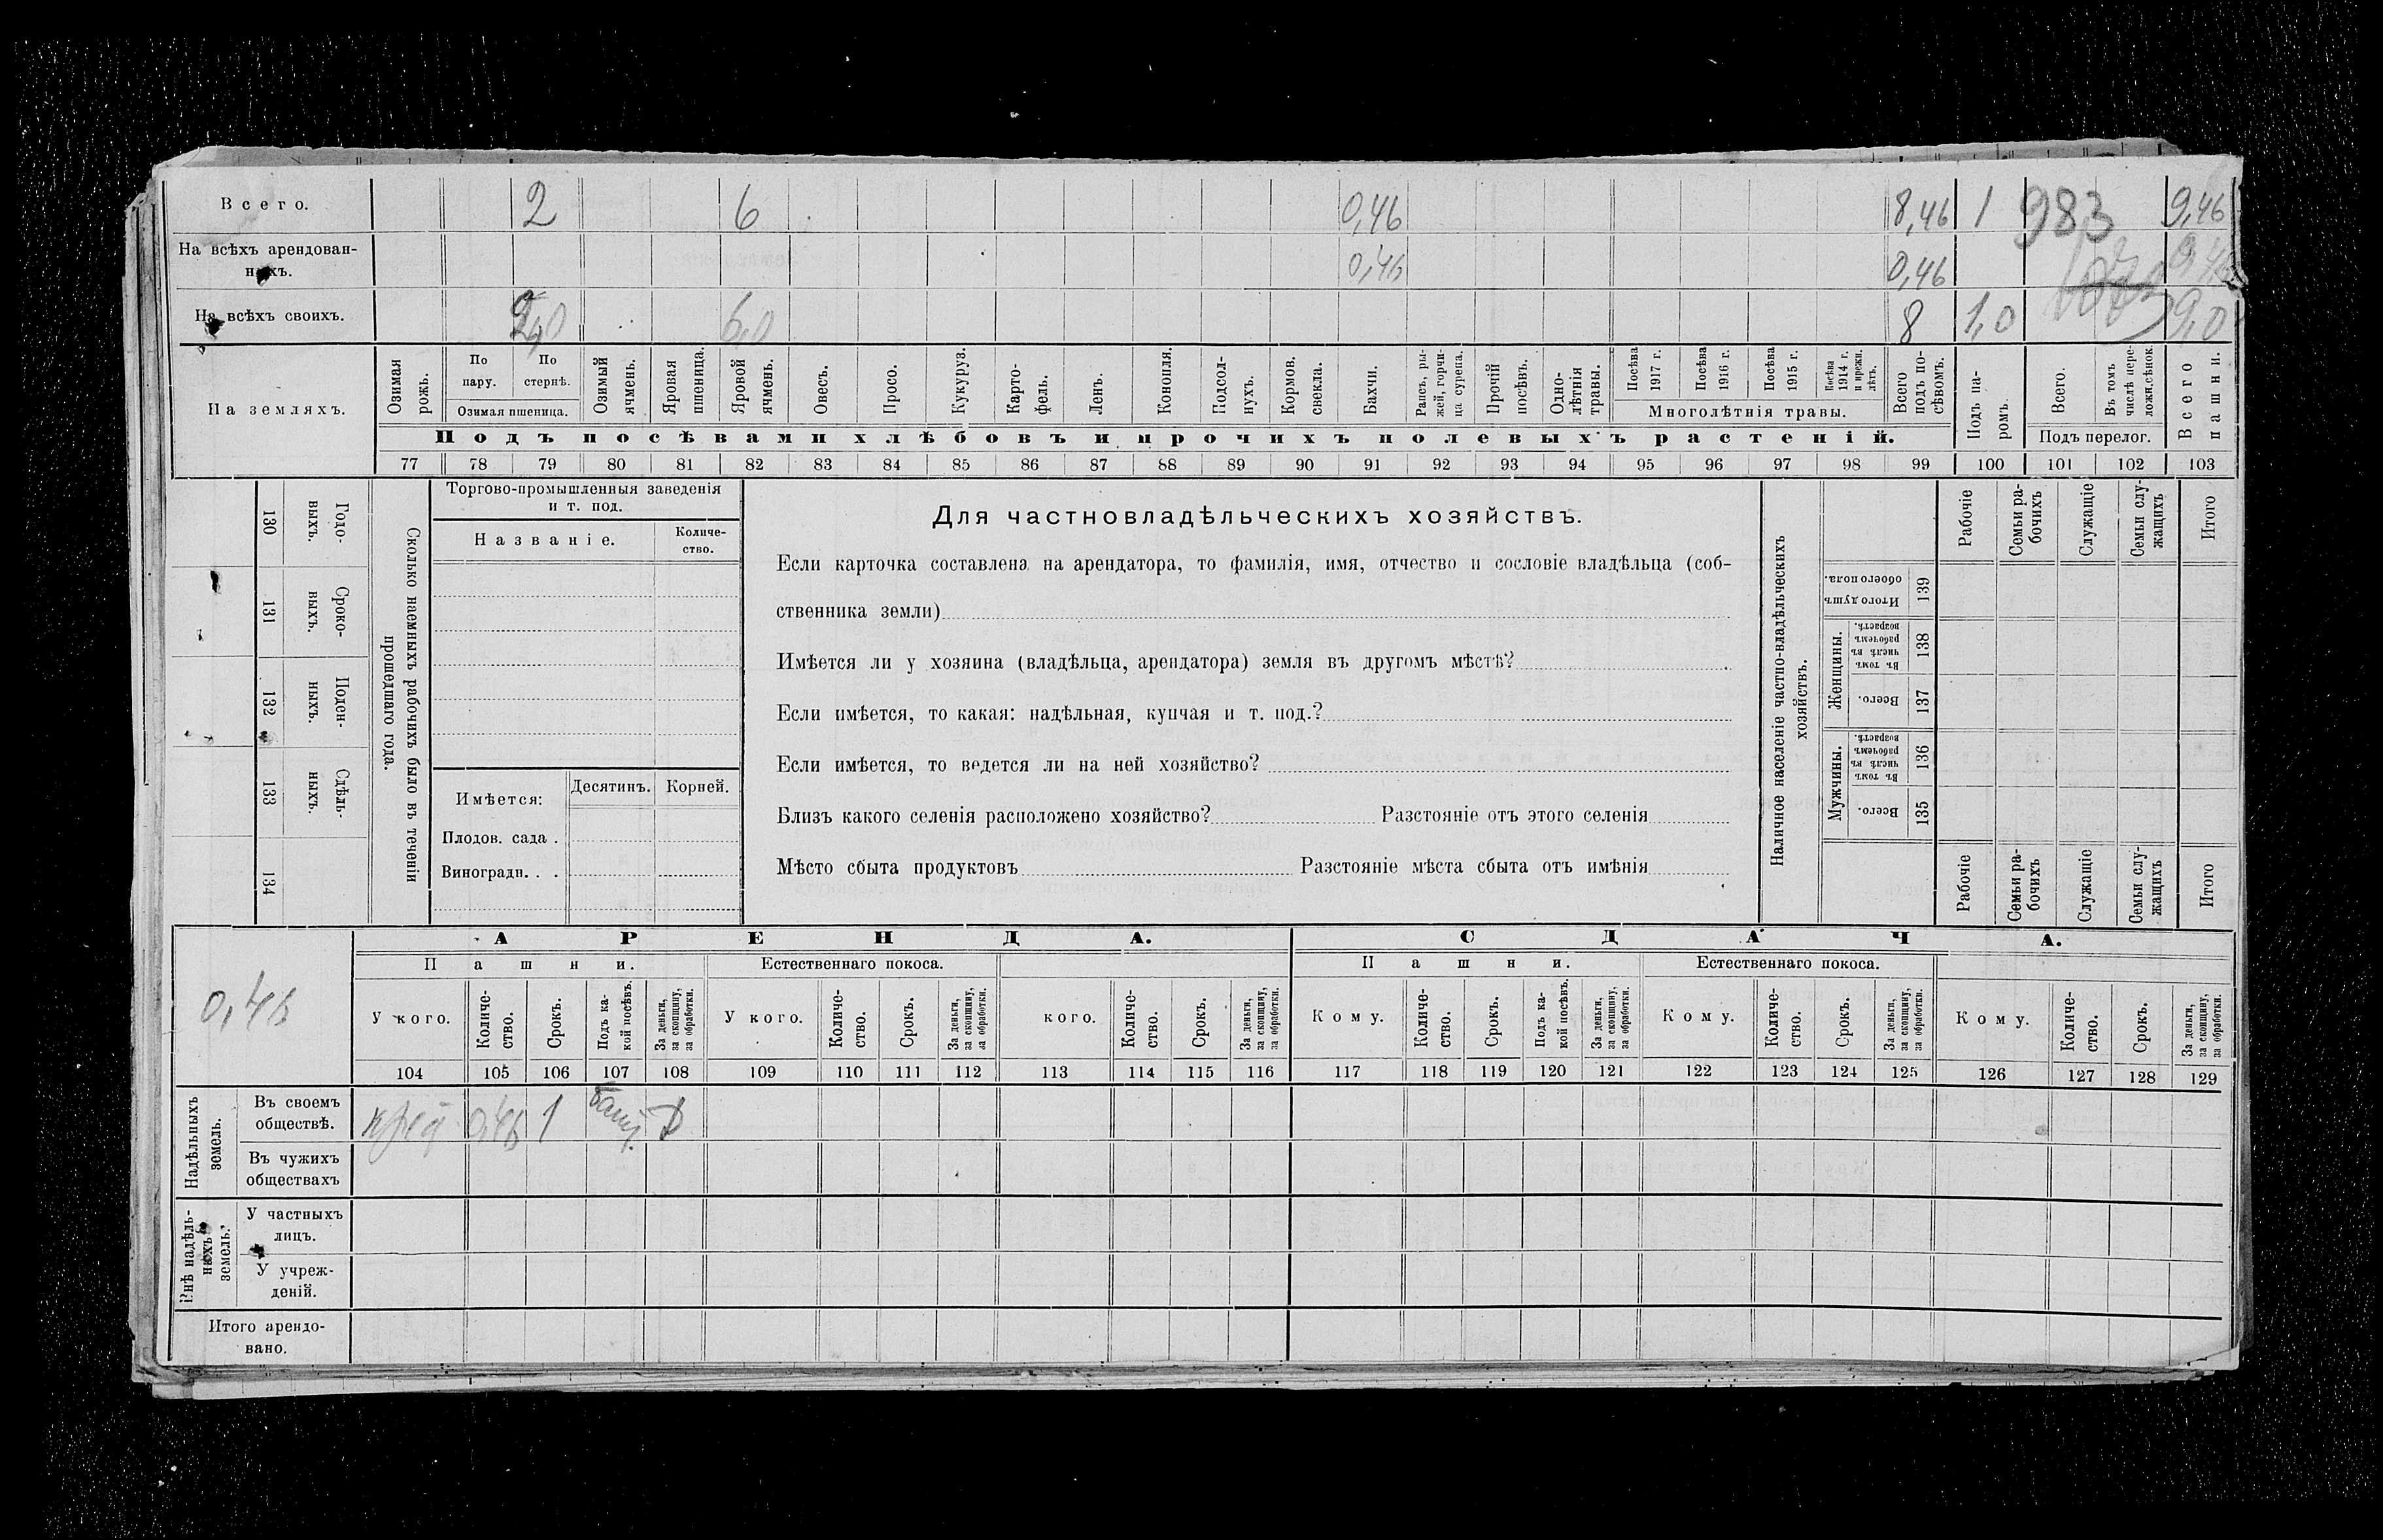 Всего. 2 6 0,46 8,46 1 983 9,46
На всѣхъ арендован-
ныхъ. 0,46 0,46 9,46
На всѣхъ своихъ. 2,0 6,0 8 1,0 9,0
На земляхъ.
Озимая рожь.
По пару.
По стернѣ.
Озимая пшеница.
Озимый ячмень.
Яровая пшеница.
Яровой ячмень.
Овесъ.
Просо.
Кукуруз.
Карто-
фель.
Ленъ.
Конопля.
Подсол-
нухъ.
Кормов.
свекла.
Бахчи.
Рапсъ, ры-
жей, горчи-
ца сурепа.
Прочій
посѣвъ.
Одно-
лѣтнія
травы.
Посѣва
1917 г.
Посѣва
1916 г.
Посѣва
1915 г.
Посѣва
1914 г.
и прежн.
лѣтъ.
Многолѣтнія травы.
Всего
подъ по-
сѣвомъ.
Подъ па-
ромъ.
Всего.
Въ томъ
числѣ пере-
ложн.сѣнок.
Подъ перелог.
Всего
пашни.
Подъ посѣвами хлѣбовъ и прочихъ полевыхъ растеній.
77 78 79 80 81 82 83 84 85 86 87 88 89 90 91 92 93 94 95 96 97 98 99 100 101 102 103
130
Годо-
выхъ.
131
Сроко-
ныхъ.
132
Поден-
ныхъ.
133
Сдѣль-
ныхъ.
134
Сколько наемныхъ рабочихъ было въ теченіи
прошедшаго года.
Торгово-промышленныя заведенія
и т. под.
Названіе.
Количе-
ство.
Имѣется:
Десятинъ.
Корней.
Плодов. сада .
Виноградн. . .
Для частновладѣльческихъ хозяйствъ.
Если карточка составлена на арендатора, то фамилія, имя, отчество и сословіе владѣльца (соб-
ственника земли)
Имѣется ли у хозяина (владѣльца, арендатора) земля въ другомъ мѣстѣ?
Если имѣется, то какая: надѣльная, купчая и т. под.?
Если имѣется, то ведется ли на ней хозяйство?
Близъ какого селенія расположено хозяйство? Разстояніе отъ этого селенія
Мѣсто сбыта продуктовъ Разстояніе мѣста сбыта отъ имѣнія
Наличное населеніе частно-владѣльческихъ
хозяйствъ.
Рабочіе
Семьи ра-
бочихъ
Служащіе
Семьи слу-
жащихъ
Итого
Итого душъ
обоего пола.
139
Женщины.
Въ томъ
числѣ въ
рабочемъ
возрастѣ.
138
Всего.
137
Мужчины.
Въ томъ
числѣ въ
рабочемъ
возрастѣ.
136
Всего.
135
Рабочіе
Семьи ра-
бочихъ
Служащіе
Семьи слу-
жащихъ
Итого
0,46
АРЕНДА.
Пашни.
Естественнаго покоса.
У кого.
Количе-
ство.
Срокъ.
Подъ ка-
кой посѣвъ.
За деньги,
за скопщину,
за обработки.
У кого.
Количе-
ство.
Срокъ.
За деньги,
за скопщину,
за обработки.
кого.
Количе-
ство.
Срокъ.
За деньги,
за скопщину,
за обработки.
СДАЧА.
Пашни.
Естественнаго покоса.
Кому.
Количе-
ство.
Срокъ.
Подъ ка-
кой посѣвъ.
За деньги,
за скопщину,
за обработки.
Кому.
Количе-
ство.
Срокъ.
За деньги,
за скопщину,
за обработки.
Кому.
Количе-
ство.
Срокъ.
За деньги,
за скопщину,
за обработки.
104 105 106 107 108 109 110 111 112 113 114 115 116 117 118 119 120 121 122 123 124 125 126 127 128 129
Надѣльныхъ
земель.
Въ своемъ
обществѣ.
0,46 1
Въ чужихъ
обществахъ
Внѣ надѣль-
ныхъ
земель.
У частныхъ
лицъ.
У учреж-
деній.
Итого арендо-
вано.